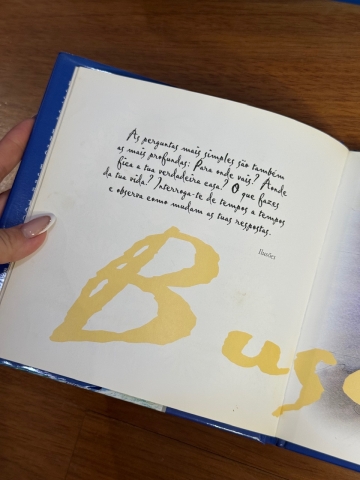 As perguntas mais simples são também
as mais profundas: Para onde vais? Aonde
fica a tua verdadeira casa? O que fazes
da tua vida? Interroga-te de tempos a tempos
e observa como mudam as tuas respostas.
Ilusões
Bus